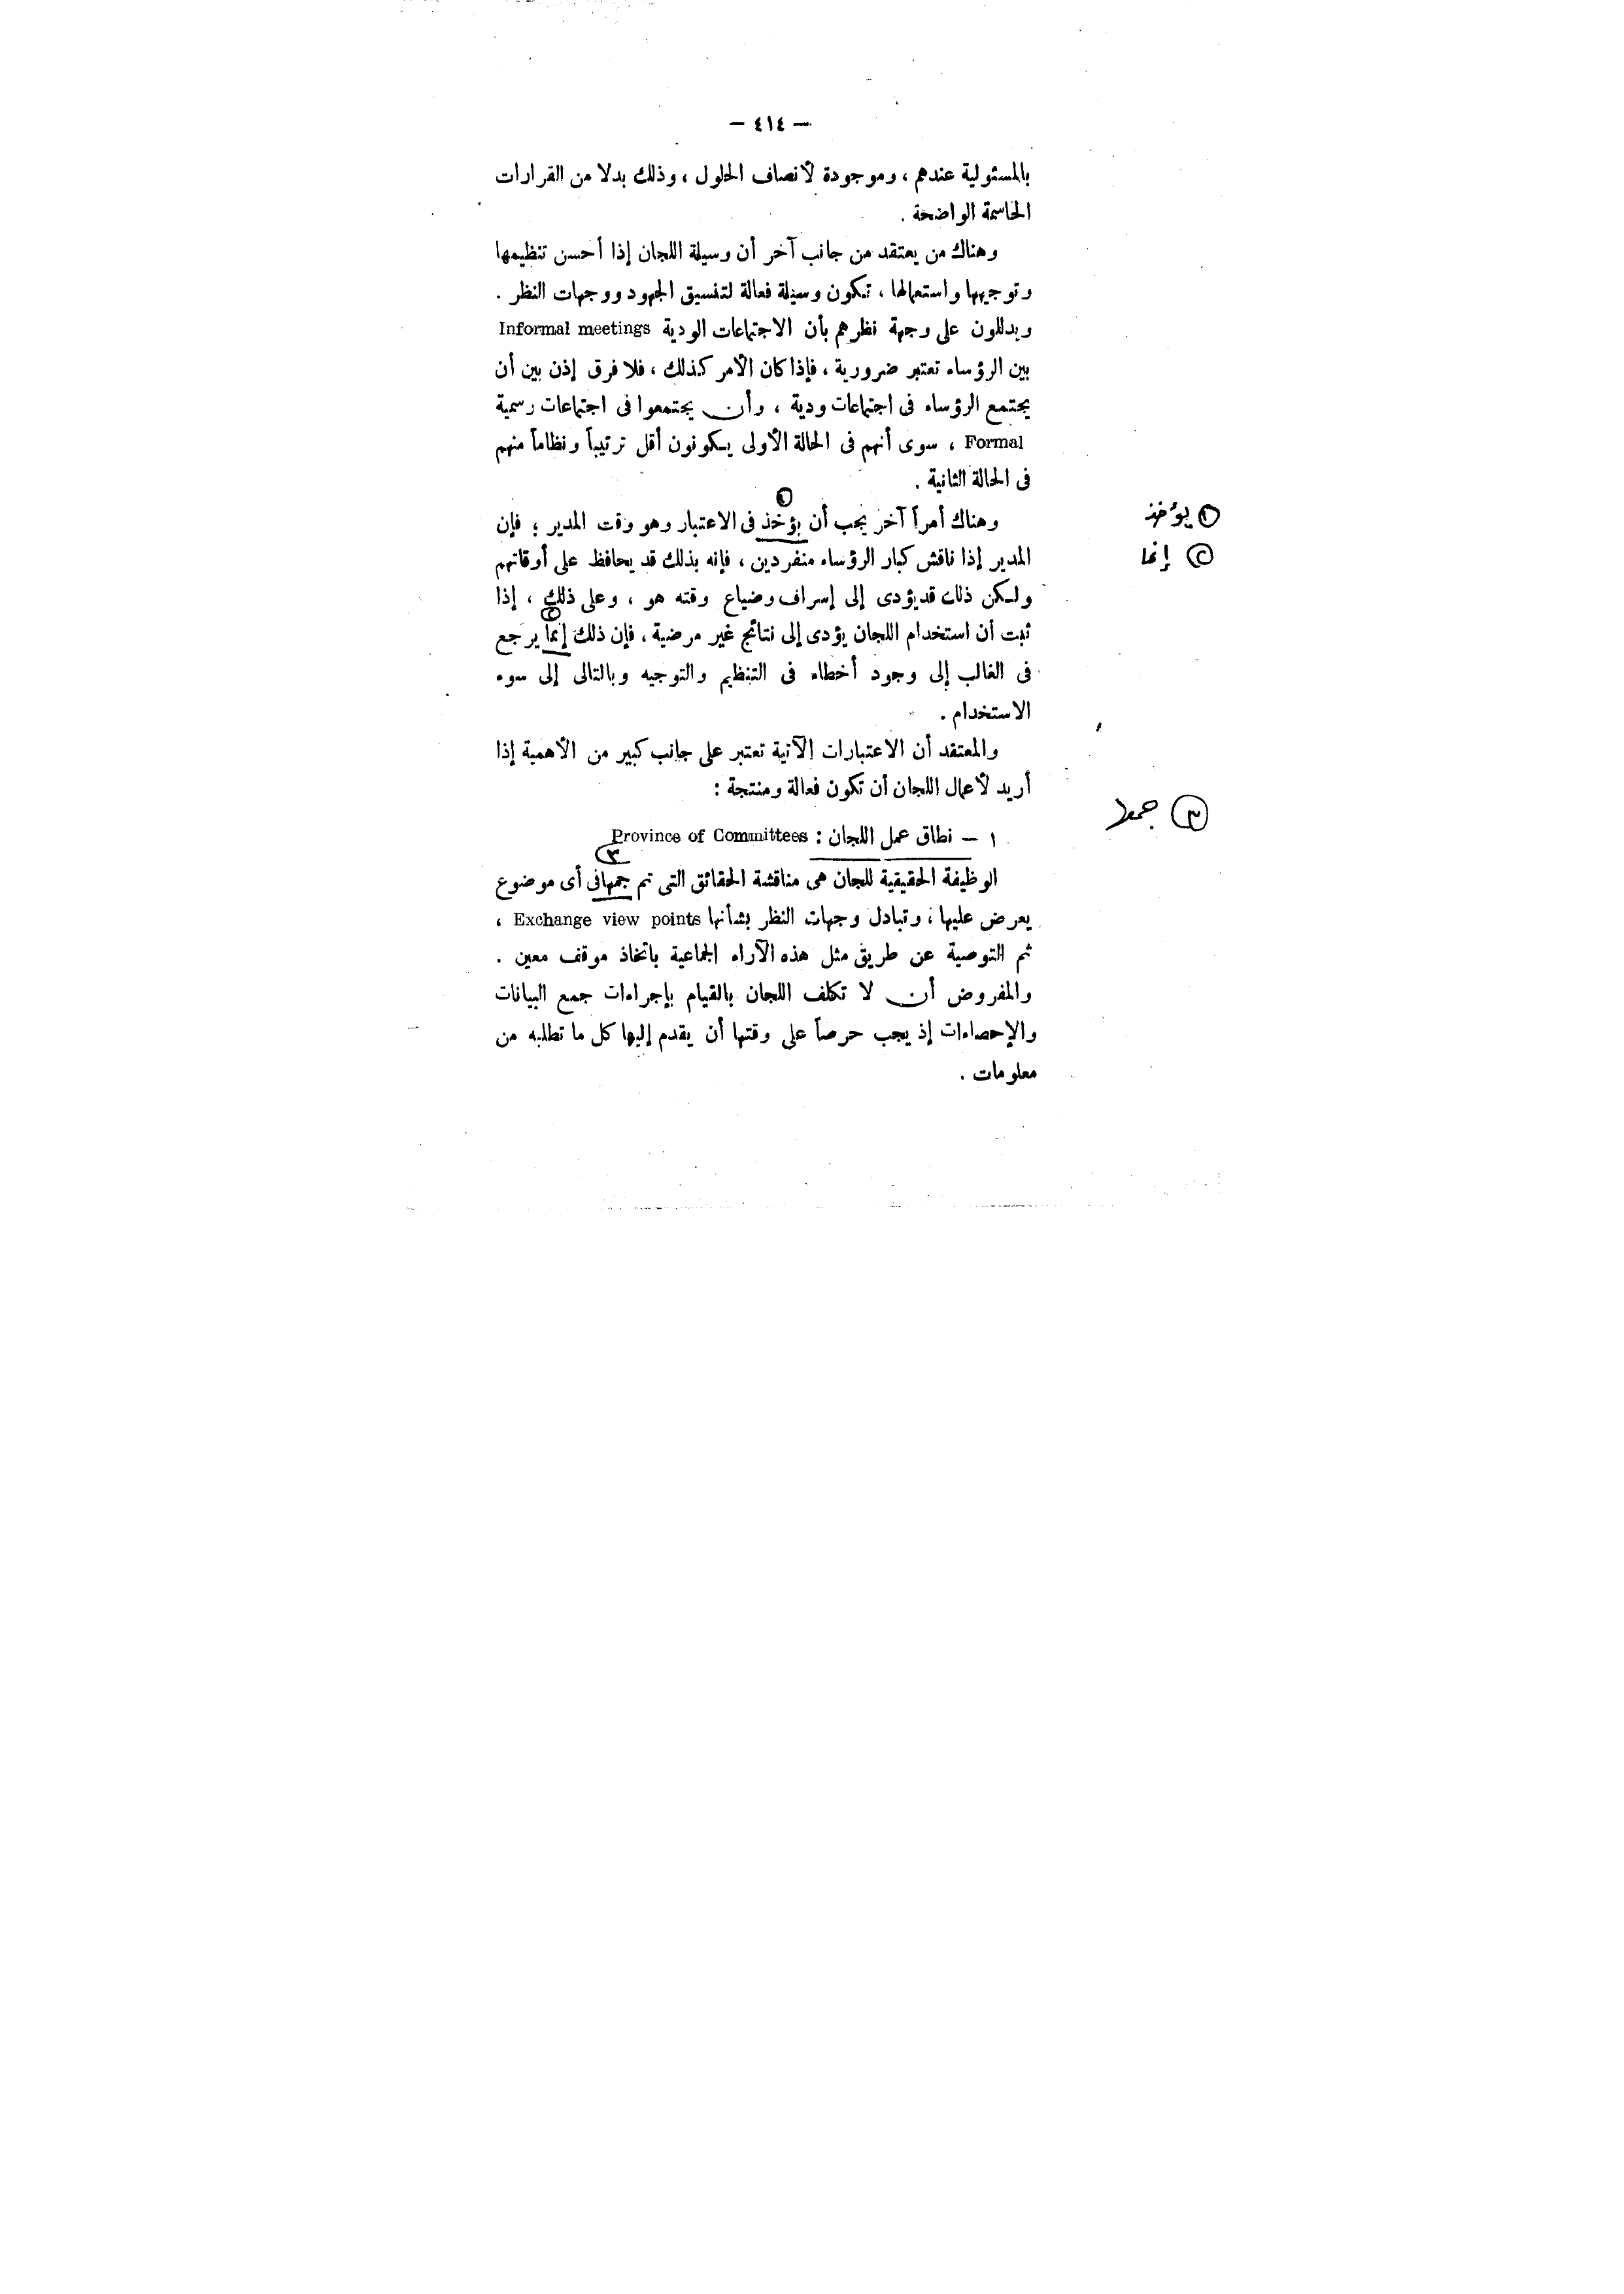 — ٤١٤ —
بالمسئولية عندهم ، وموجودة لأنصاف الحلول ، وذلك بدلا من القرارات
الحاسمة الواضحة .
وهناك من يعتقد من جانب آخر أن وسيلة اللجان إذا أحسن تنظيمها
وتوجيهها واستعمالها ، تكون وسيلة فعالة لتنسيق الجهود ووجهات النظر .
ويدللون على وجهة نظرهم بأن الاجتماعات الودية Informal meetings
بين الرؤساء تعتبر ضرورية ، فإذا كان الأمر كذلك ، فلا فرق إذن بين أن
يجتمع الرؤساء فى اجتماعات ودية ، وأن يجتمعوا فى اجتماعات رسمية
Formal ، سوى أنهم فى الحالة الأولى يكونون أقل ترتيباً ونظاماً منهم
فى الحالة الثانية .
وهناك أمراً آخر يجب أن يؤخذ فى الاعتبار وهو وقت المدير ؛ فإن
① يؤخذ
المدير إذا ناقش كبار الرؤساء منفردين ، فإنه بذلك قد يحافظ على أوقاتهم
② إنما
ولكن ذلك قد يؤدى إلى إسراف وضياع وقته هو ، وعلى ذلك ، إذا
ثبت أن استخدام اللجان يؤدى إلى نتائج غير مرضية ، فإن ذلك إنما يرجع
فى الغالب إلى وجود أخطاء فى التنظيم والتوجيه وبالتالى إلى سوء
الاستخدام .
والمعتقد أن الاعتبارات الآتية تعتبر على جانب كبير من الأهمية إذا
أريد لأعمال اللجان أن تكون فعالة ومنتجة :
③
١ — نطاق عمل اللجان : Province of Committees
الوظيفة الحقيقية للجان هى مناقشة الحقائق التى تم جمعها فى أى موضوع
يعرض عليها ، وتبادل وجهات النظر بشأنها Exchange view points ،
ثم التوصية عن طريق مثل هذه الآراء الجماعية باتخاذ موقف معين .
والمفروض أن لا تكلف اللجان بالقيام بإجراءات جمع البيانات
والإحصاءات إذ يجب حرصاً على وقتها أن يقدم إليها كل ما تطلبه من
معلومات .